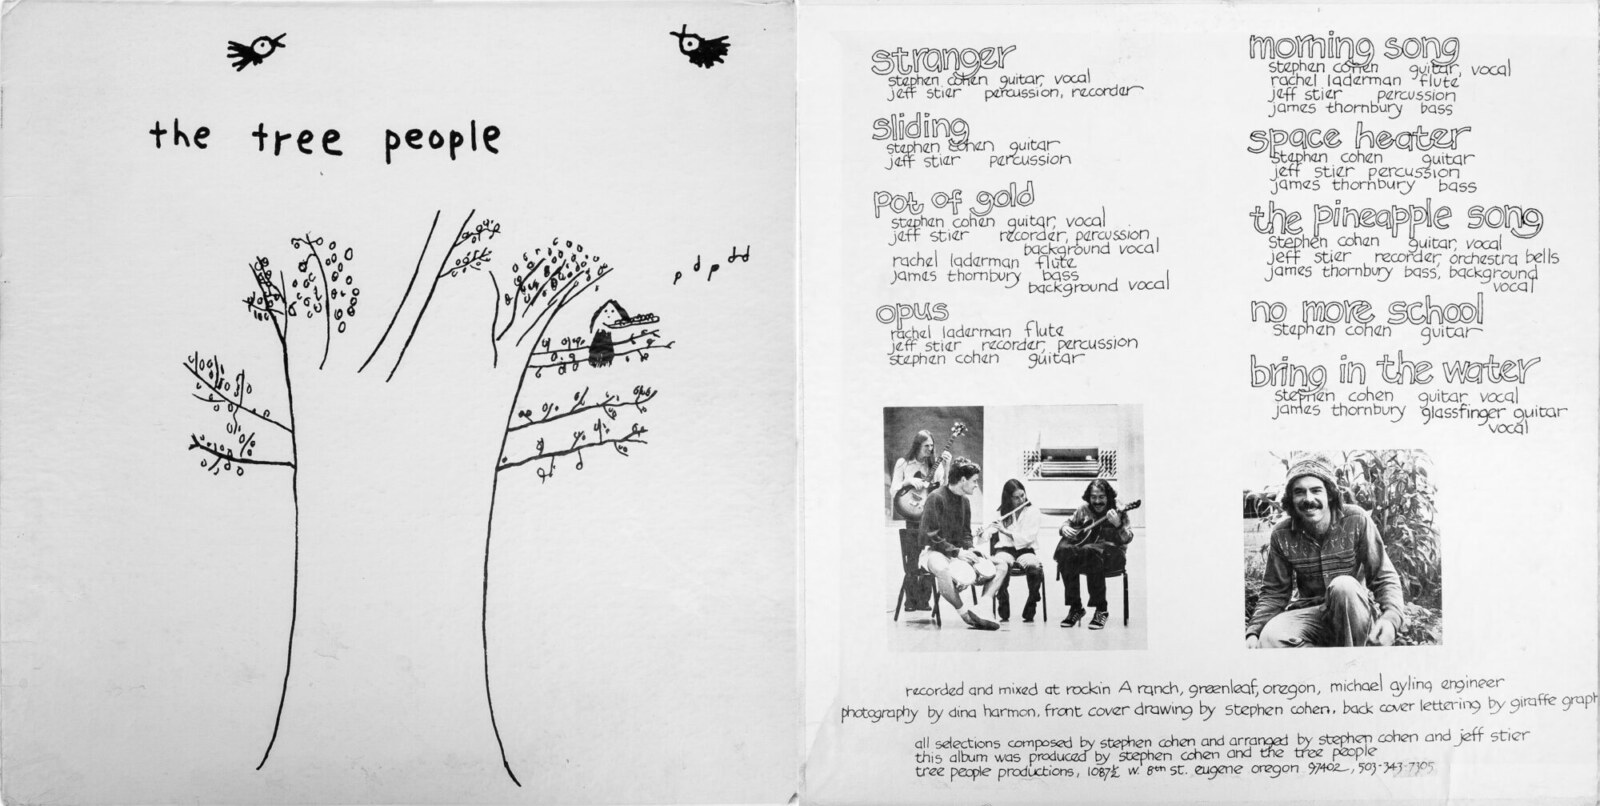 the tree people
stranger
stephen cohen guitar, vocal
jeff stier percussion, recorder
sliding
stephen cohen guitar
jeff stier percussion
pot of gold
stephen cohen guitar, vocal
jeff stier recorder, percussion
background vocal
rachel laderman flute
james thornbury bass
background vocal
opus
rachel laderman flute
jeff stier recorder, percussion
stephen cohen guitar
morning song
stephen cohen guitar, vocal
rachel laderman flute
jeff stier percussion
james thornbury bass
space heater
stephen cohen guitar
jeff stier percussion
james thornbury bass
the pineapple song
stephen cohen guitar, vocal
jeff stier recorder, orchestra bells
james thornbury bass, background
vocal
no more school
stephen cohen guitar
bring in the water
stephen cohen guitar vocal
james thornbury glassfinger guitar
vocal
recorded and mixed at rockin A ranch, greenleaf, oregon, michael ayling engineer
photography by dina harmon, front cover drawing by stephen cohen, back cover lettering by giraffe graph
all selections composed by stephen cohen and arranged by stephen cohen and jeff stier
this album was produced by stephen cohen and the tree people
tree people productions, 1087½ w. 8th st. eugene oregon 97402, 503-343-7305